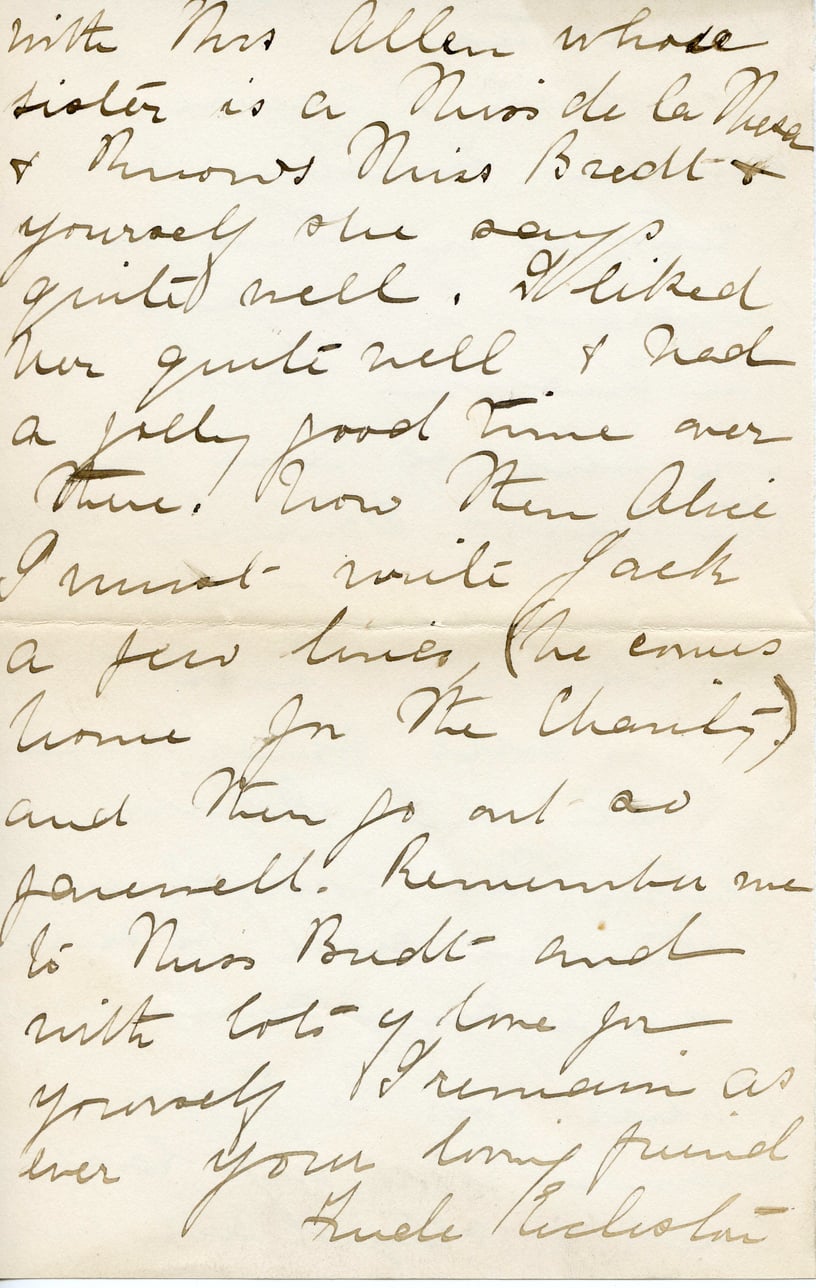 with Mrs Allen whose
sister is a Miss de la Mesa
& knows Miss Bredt &
yourself she says
quite well. I liked
her quite well & had
a jolly good time over
there. Now then Alice
I must write Jack
a few lines, (he comes
home for the Charity.)
and then go out so
farewell. Remember me
to Miss Bredt and
with lots of love for
yourself I remain as
ever your loving friend